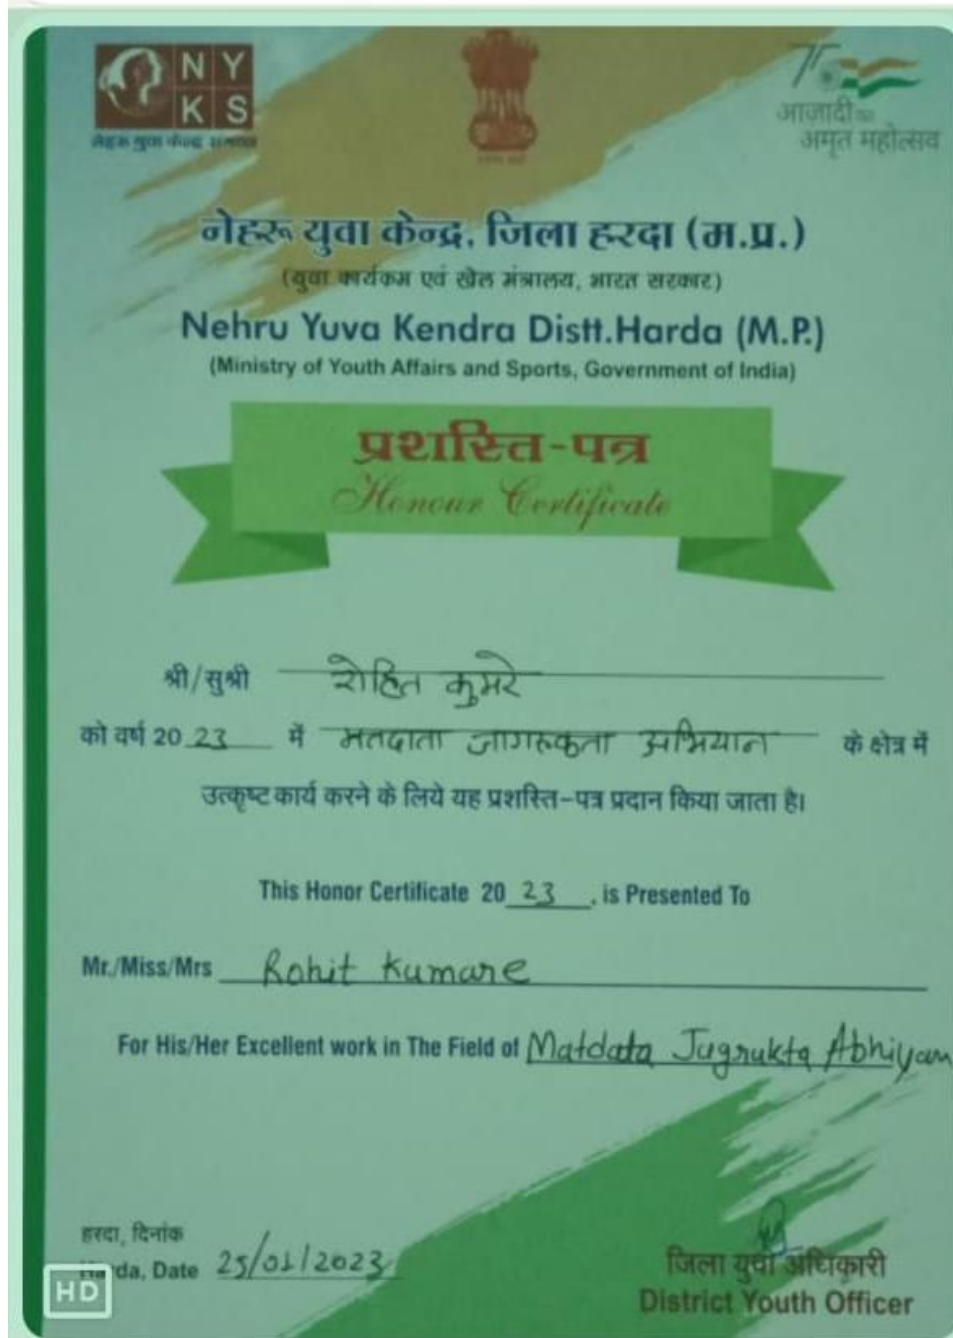 N Y
K S
नेहरू युवा केन्द्र संगठन
आज़ादी का
अमृत महोत्सव
नेहरू युवा केन्द्र, जिला हरदा (म.प्र.)
(युवा कार्यकम एवं खेल मंत्रालय, भारत सरकार)
Nehru Yuva Kendra Distt.Harda (M.P.)
(Ministry of Youth Affairs and Sports, Government of India)
प्रशस्ति-पत्र
Honour Certificate
श्री/सुश्री रोहित कुमरे
को वर्ष 2023 में मतदाता जागरुकता अभियान के क्षेत्र में
उत्कृष्ट कार्य करने के लिये यह प्रशस्ति-पत्र प्रदान किया जाता है।
This Honor Certificate 2023, is Presented To
Mr./Miss/Mrs Rohit Kumare
For His/Her Excellent work in The Field of Matdata Jugrukta Abhiyan
हरदा, दिनांक
Harda, Date 25/01/2023
जिला युवा अधिकारी
District Youth Officer
HD